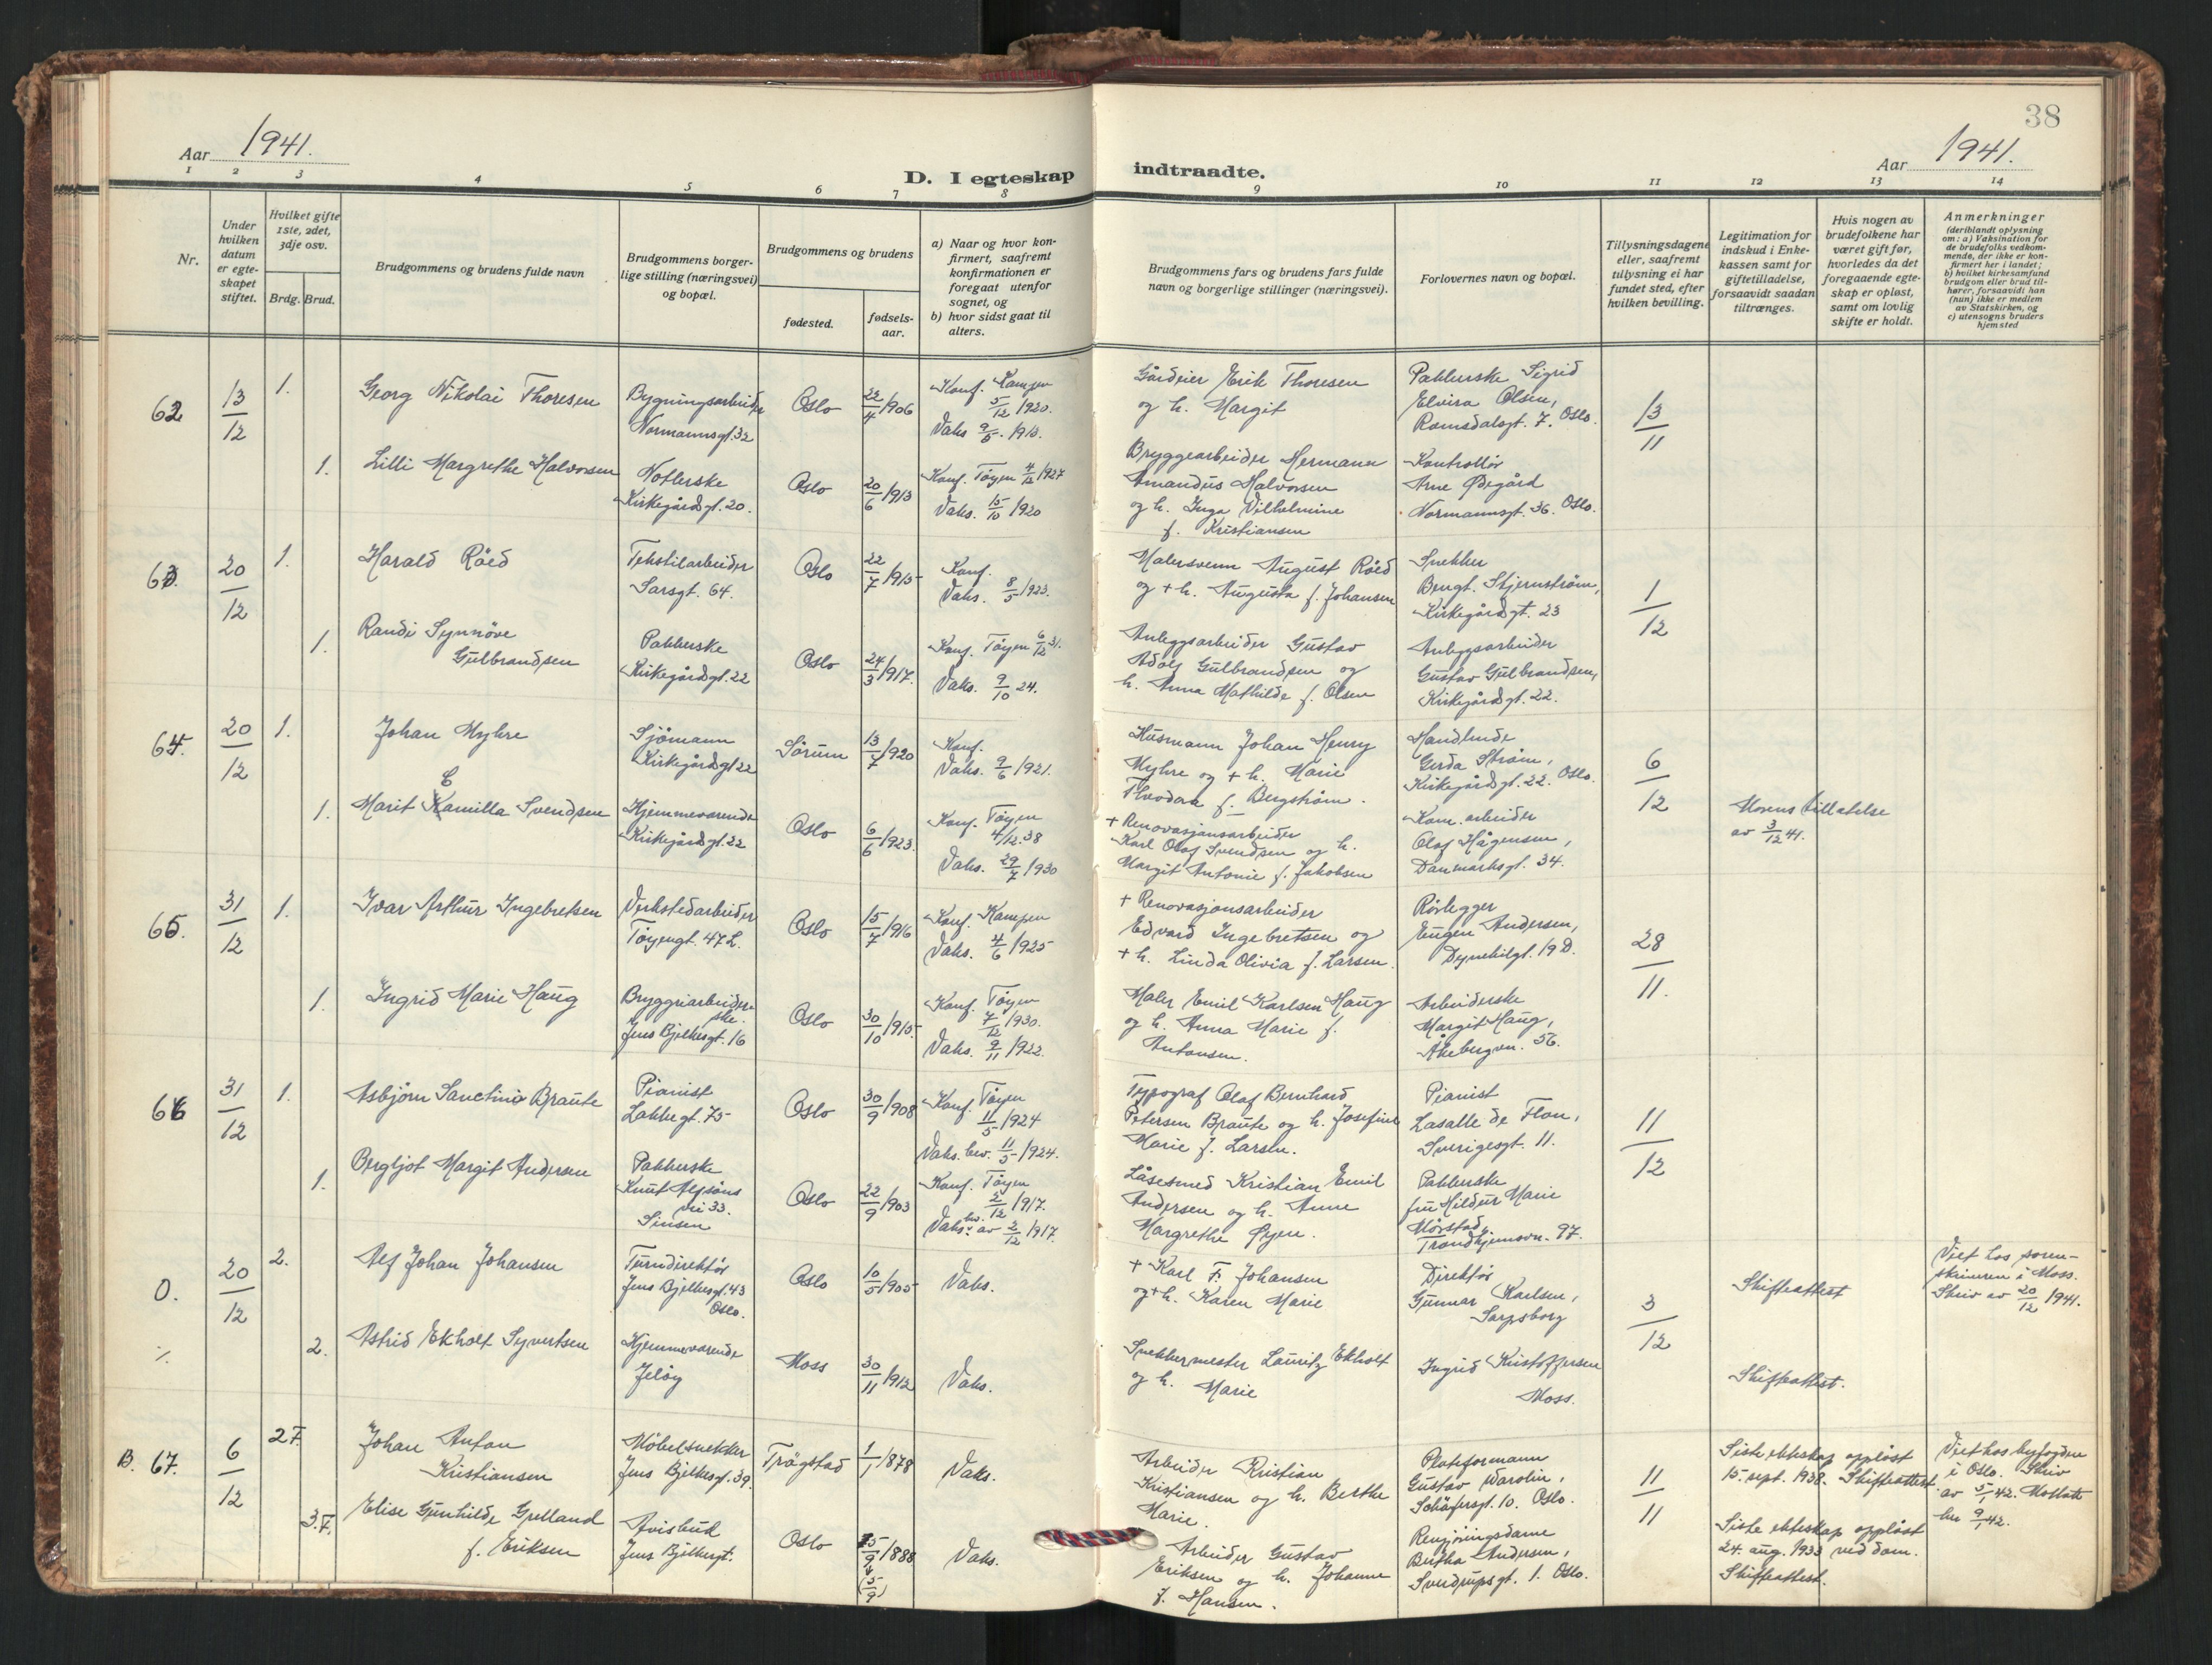 38
Aar 1941.
D. I egteskap indtraadte.
Aar 1941.
1 2 3 4 5 6 7 8 9 10 11 12 13 14
Nr.
Under
hvilken
datum
er egte-
skapet
stiftet.
Hvilket gifte
1ste, 2det,
3dje osv.
Brdg. Brud.
Brudgommens og brudens fulde navn
Brudgommens borger-
lige stilling (næringsvei)
og bopæl.
Brudgommens og brudens
fødested.
fødsels-
aar.
a) Naar og hvor kon-
firmert, saafremt
konfirmationen er
foregaat utenfor
sognet, og
b) hvor sidst gaat til
alters.
Brudgommens fars og brudens fars fulde
navn og borgerlige stillinger (næringsvei).
Forlovernes navn og bopæl.
Tillysningsdagene
eller, saafremt
tillysning ei har
fundet sted, efter
hvilken bevilling.
Legitimation for
indskud i Enke-
kassen samt for
giftetilladelse,
forsaavidt saadan
tiltrænges.
Hvis nogen av
brudefolkene har
været gift før,
hvorledes da det
foregaaende egte-
skap er opløst,
samt om lovlig
skifte er holdt.
Anmerkninger
(deriblandt oplysning
om: a) Vaksination for
de brudefolks vedkom-
mende, der ikke er kon-
firmert her i landet;
b) hvilket kirkesamfund
brudgom eller brud til-
hører, forsaavidt han
(hun) ikke er medlem
av Statskirken, og
c) utensogns bruders
hjemsted
62
13/12
1.
Georg Nikolai Thoresen
Bygningsarbeider
Normannsgt. 32
Oslo
22/4 1906
Konf. Kampen
5/12 1920.
Vaks 9/5. 1913.
Gårdeier Erik Thoresen
og h. Margit
Pakkerske Sigrid
Elvira Olsen,
Romsdalsgt. 7. Oslo.
13/11
1.
Lilli Margrethe Halvorsen
Notlerske
Kirkegårdsgt. 20.
Oslo
20/6 1913
Konf. Tøyen 4/12 1927
Vaks. 15/10 1920
Bryggearbeider Hermann
Amandus Halvorsen
og h. Inga Vilhelmine
f. Kristiansen
Kontrollør
Arne Ødegård
Normannsgt. 36. Oslo.
63.
20/12
1.
Harald Røed
Tekstilarbeider
Sarsgt. 64.
Oslo
22/7 1915
Konf.
Vaks. 8/5 1923.
Malersvenn August Røed
og + h. Augusta f. Johansen
Snekker
Bengt. Stjernstrøm,
Kirkegårdsgt. 23
1/12
1.
Randi Synnøve
Gulbrandsen
Pakkerske
Kirkegårdsgt. 22
Oslo
24/3 1917.
Konf. Tøyen 6/12 31.
Vaks. 9/10 24.
Anleggsarbeider Gustav
Adolf Gulbrandsen og
h. Anna Mathilde f. Olsen
Anleggsarbeider
Gustav Gulbrandsen,
Kirkegårdsgt. 22.
64.
20/12
1.
Johan Myhre
Sjømann
Kirkegårdsgt 22
Sørum
13/7 1920
Konf.
Vaks. 9/6 1921.
Husmann Johan Henry
Myhre og + h. Marie
Theodora f. Bergstrøm.
Handlende
Gerda Strøm,
Kirkegårdsgt. 22. Oslo.
6/12
1.
C
Marit Kamilla Svendsen
Hjemmeværende
Kirkegårdsgt. 22
Oslo
6/6 1923.
Konf. Tøyen
4/12.38
Vaks. 29/7 1930
+ Renovasjonsarbeider
Karl Olaf Svendsen og h.
Margit Antonie f. Jakobsen
Kom. arbeider
Olaf Hågensen,
Danmarksgt. 34.
Morens tillatelse
av 3/12 41.
65.
31/12
1.
Ivar Arthur Ingebretsen
Verkstedarbeider
Tøyengt. 47 L.
Oslo
15/7 1916
Konf. Kampen
Vaks. 4/6 1925
+ Renovasjonsarbeider
Edvard Ingebretsen og
+ h. Linda Olivia f. Larsen.
Rørlegger
Eugen Andersen,
Dynekilgt. 19 D.
28/11.
1.
Ingrid Marie Haug
Bryggeriarbeider-
ske.
Jens Bjelkesgt. 16
Oslo
30/10 1915.
Konf. Tøyen
7/12 1930.
Vaks. 9/11 1922.
Maler Emil Karlsen Haug
og h. Anna Marie f.
Antonsen.
Arbeiderske
Margit Haug,
Åkebergvn. 56.
66
31/12
1.
Asbjørn Sanctino Braute
Pianist
Lakkegt. 75
Oslo
30/9 1908
Konf. Tøyen
11/5 1924
Vaks. bev. 11/5 1924.
Typograf Olaf Bernhard
Petersen Braute og h. Josefine
Marie f. Larsen.
Pianist
Lasalle de Flon,
Sverigesgt. 11.
11/12
1.
Bergljot Margit Andersen
Pakkerske
Knut Alfsøns
vei 33.
Sinsen
Oslo
22/9 1903
Konf. Tøyen
2/12 1917.
Vaks. bev. av 2/12 1917.
Låsesmed Kristian Emil
Andersen og h. Anne
Margrethe Øyen.
Pakkerske
fru Hildur Marie
Mørstad,
Trondhjemsvn. 97.
0.
20/12
2.
Alf Johan Johansen
Turndirektør
Jens Bjelkesgt. 43
Oslo.
Oslo
10/5 1905
Vaks.
+ Karl F. Johansen
og + h. Karen Marie
Direktør
Gunnar Karlsen,
Sarpsborg
3/12
Skifteattest
Viet hos soren-
skriveren i Moss.
Skriv av 20/12 1941.
%
2.
Astrid Ekholt Syvertsen
Hjemmeværende
Jeløy
Moss
30/11 1912
Vaks.
Snekkermester Lauritz Ekholt
og h. Marie
Ingrid Kristoffersen
Moss.
Skifteattest.
B. 67.
6/12
2 F.
Johan Anton
Kristiansen
Møbelsnekker
Jens Bjelkesgt. 39.
Trøgstad
1/1 1878
Vaks.
Arbeider Kristian
Kristiansen og h. Berthe
Marie.
Plateformann
Gustav Warolin,
Schäfersgt. 10. Oslo.
11/11
Siste ekteskap oppløst
15. sept. 1938. Skifteattest.
Viet hos byfogden
i Oslo. Skriv
av 5/1 42. Mottatt
her 9/1 42.
3. F.
Elise Gunhilde Grelland
f. Eriksen
Avisbud
Jens Bjelkesgt.
Oslo
25/9 1888
(5/9)
Vaks.
Arbeider Gustav
Eriksen og h. Johanne
f. Hansen.
Rengjøringsdame
Bertha Andersen,
Sverdrupsgt. 1. Oslo.
Siste ekteskap oppløst
24. aug. 1933 ved dom.
Skifteattest.